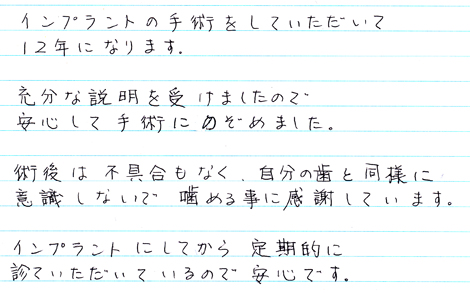 インプラントの手術をしていただいて
12年になります.
充分な説明を受けましたので
安心して手術にのぞめました。
術後は不具合もなく、自分の歯と同様に
意識しないで噛める事に感謝しています。
インプラントにしてから定期的に
診ていただいているので安心です。